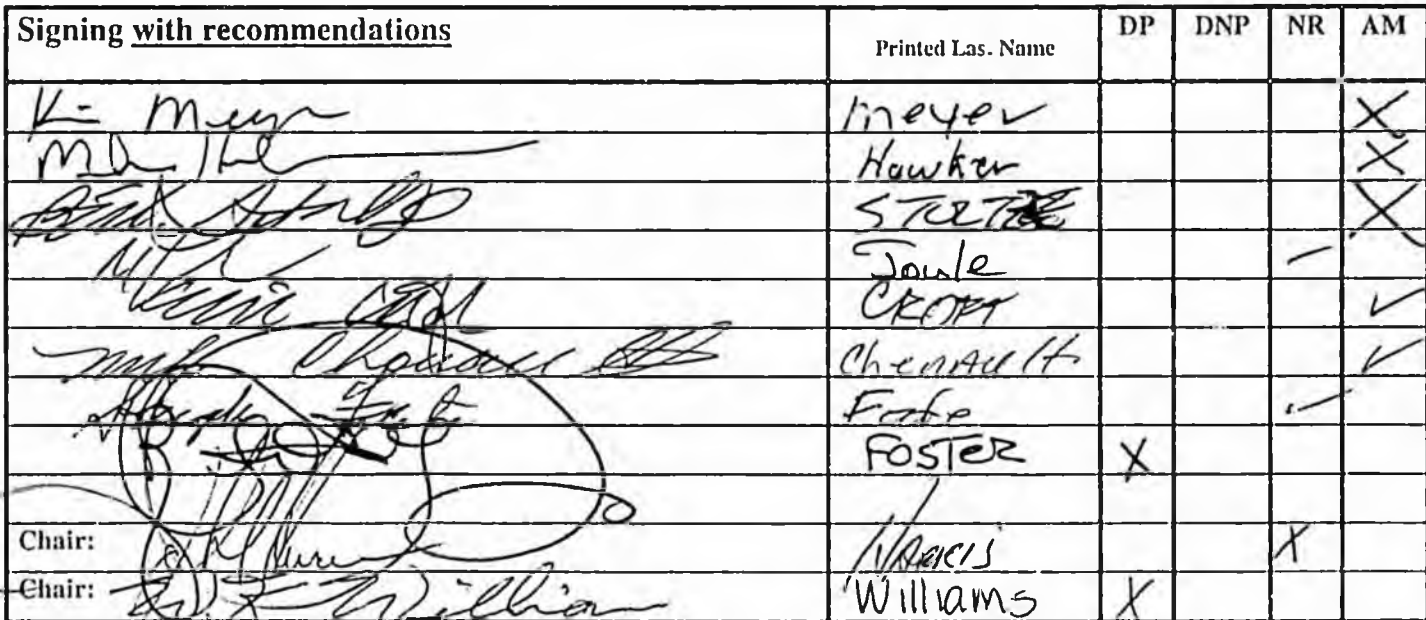 Signing with recommendations Printed Las. Name DP DNP NR AM
K- Meyer Meyer X
Hawker X
STOLTZE X
Joule –
CROFT ✓
Mike Chenault Chenault ✓
Fate –
FOSTER X
Chair: Harris X
Chair: Williams Williams X